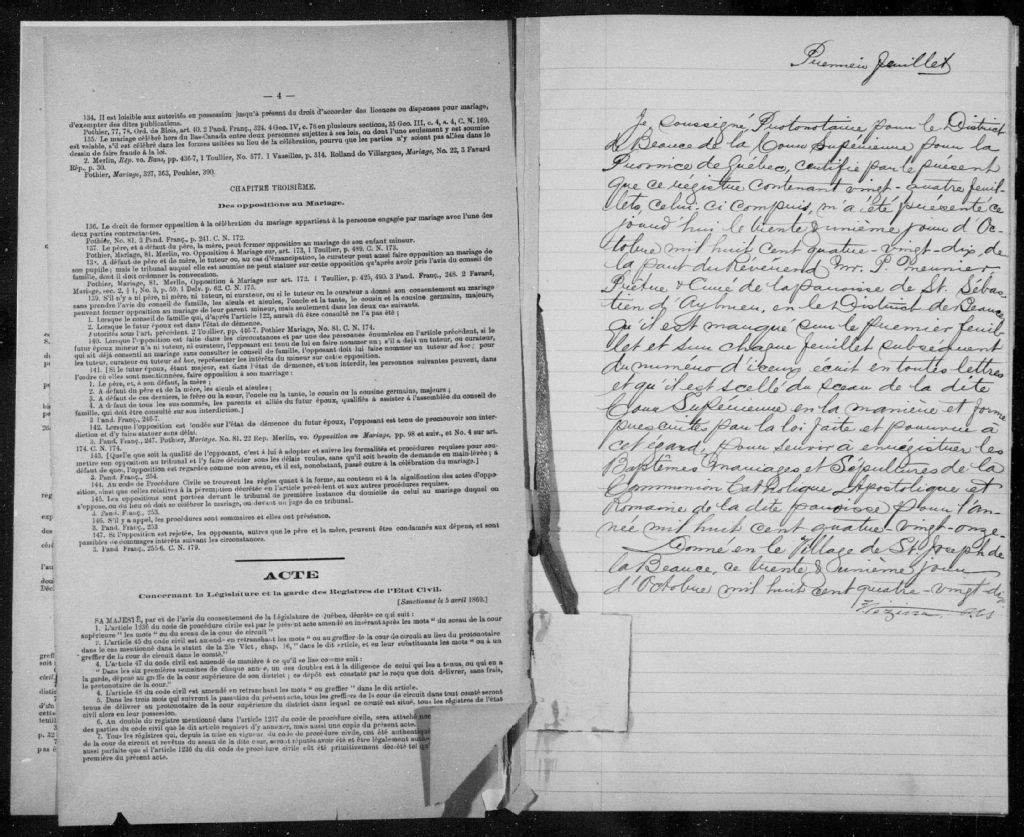 — 4 —
134. Il est loisible aux autorités en possession jusqu'à présent du droit d'accorder des licences ou dispenses pour mariage,
d'exempter des dites publications.
Pothier, 77, 78. Ord. de Blois, art. 40. 2 Pand. Franç., 324. 4 Geo. IV, c. 76 en plusieurs sections, 35 Geo. III, c. 4, s. 4, C. N. 169.
135. Le mariage célébré hors du Bas-Canada entre deux personnes sujettes à ses lois, ou dont l'une seulement y est soumise
est valable, s'il est célébré dans les formes usitées au lieu de la célébration, pourvu que les parties n'y soient pas allées dans le
dessein de faire fraude à la loi.
2. Merlin, Rép. vo. Bans, pp. 436-7, 1 Toullier, No. 577. 1 Vaseilles, p. 314. Rolland de Villargues, Mariage, No. 22, 3 Favard
Rép., p. 50.
Pothier, Mariage, 327, 363, Pouhier, 390.
CHAPITRE TROISIÈME.
Des oppositions au Mariage.
136. Le droit de former opposition à la célébration du mariage appartient à la personne engagée par mariage avec l'une des
deux parties contractantes.
Pothier, No. 81. 3 Pand. Franç., p. 241. C. N. 172.
137. Le père, et à défaut du père, la mère, peut former opposition au mariage de son enfant mineur.
Pothier, Mariage, 81. Merlin, vo. Opposition à Mariage sur art. 173, 1 Toullier, p. 489. C. N. 173.
138. A défaut de père et de mère, le tuteur ou, au cas d'émancipation, le curateur peut aussi faire opposition au mariage de
son pupille; mais le tribunal auquel elle est soumise ne peut statuer sur cette opposition qu'après avoir pris l'avis du conseil de
famille, dont il doit ordonner la convocation.
Pothier, Mariage, 81. Merlin, Opposition à Mariage sur art. 172. 1 Toullier, p. 425, 490. 3 Pand. Franç., 248. 2 Favard,
Mariage, sec. 2, § 1, No. 3, p. 59. 1 Delv. p. 62. C. N. 175.
139. S'il n'y a ni père, ni mère, ni tuteur, ni curateur, ou si le tuteur ou le curateur a donné son consentement au mariage
sans prendre l'avis du conseil de famille, les aïeuls et aïeules, l'oncle et la tante, le cousin et la cousine germains, majeurs,
peuvent former opposition au mariage de leur parent mineur, mais seulement dans les deux cas suivants.
1. Lorsque le conseil de famille qui, d'après l'article 122, aurait dû être consulté ne l'a pas été;
2. Lorsque le futur époux est dans l'état de démence.
Autorités sous l'art. précédent. 2 Toullier, pp. 446-7. Pothier Mariage, No. 81. C. N. 174.
140. Lorsque l'opposition est faite dans les circonstances et par une des personnes énumérées en l'article précédent, si le
futur époux mineur n'a ni tuteur, ni curateur, l'opposant est tenu de lui en faire nommer un; s'il a déjà un tuteur, ou curateur,
qui ait déjà consenti au mariage sans consulter le conseil de famille, l'opposant doit lui faire nommer un tuteur ad hoc; pour
les tuteur, curateur ou tuteur ad hoc, représenter les intérêts du mineur sur cette opposition.
141. [Si le futur époux, étant majeur, est dans l'état de démence, et non interdit, les personnes suivantes peuvent, dans
l'ordre où elles sont mentionnées, faire opposition à son mariage:
1. Le père, et, à son défaut, la mère;
2. A défaut du père et de la mère, les aïeuls et aïeules;
3. A défaut de ces derniers, le frère ou la sœur, l'oncle ou la tante, le cousin ou la cousine germains, majeurs;
4. A défaut de tous les sus-nommés, les parents et alliés du futur époux, qualifiés à assister à l'assemblée du conseil de
famille, qui doit être consulté sur son interdiction.]
3 Pand. Franç., 246-7.
142. Lorsque l'opposition est fondée sur l'état de démence du futur époux, l'opposant est tenu de promouvoir son inter-
diction et d'y faire statuer sans délai.
3. Pand. Franç., 247. Pothier, Mariage. No. 81. 22 Rep. Merlin, vo. Opposition au Mariage, pp. 98 et suiv., et No. 4 sur art.
174. C. N. 174.
143. [Quelle que soit la qualité de l'opposant, c'est à lui à adopter et suivre les formalités et procédures requises pour sou-
mettre son opposition au tribunal et l'y faire décider sous les délais voulus, sans qu'il soit besoin de demande en main-levée; à
défaut de quoi, l'opposition est regardée comme non avenu, et il est, nonobstant, passé outre à la célébration du mariage.]
3. Pand. Franç., 254.
144. Au code de Procédure Civile se trouvent les règles quant à la forme, au contenu et à la signification des actes d'oppo-
sition, ainsi que celles relatives à la péremption décrétée en l'article précédent et aux autres procédures requises.
145. Les oppositions sont portées devant le tribunal de première instance du domicile de celui au mariage duquel on
s'oppose, ou du lieu où doit se célébrer le mariage, ou devant un juge de ce tribunal.
3. Pand. Franç., 253.
146. S'il y a appel, les procédures sont sommaires et elles ont préséance.
3. Pand. Franç., 253
147. Si l'opposition est rejetée, les opposants, autres que le père et la mère, peuvent être condamnés aux dépens, et sont
passibles de dommages intérêts suivant les circonstances.
3. Pand. Franç., 255-6. C. N. 179.
ACTE
Concernant la Législature et la garde des Registres de l'Etat Civil.
[Sanctionné le 5 avril 1869.]
SA MAJESTÉ, par et de l'avis du consentement de la Législature de Québec, décrète ce qui suit:
1. L'article 1236 du code de procédure civile est par le présent acte amendé en insérant après les mots "du sceau de la cour
supérieure" les mots "ou du sceau de la cour de circuit"
2. L'article 45 du code civil est amendé en retranchant les mots "ou au greffier de la cour de circuit au lieu du protonotaire
dans le cas mentionné dans le statut de la 25e Vict., chap. 16," dans le dit article, et en leur substituant les mots "ou à un
greffier de la cour de circuit dans le comté."
4. L'article 47 du code civil est amendé de manière à ce qu'il se lise comme suit:
"Dans les six premières semaines de chaque année, un des doubles est à la diligence de celui qui les a tenus, ou qui en a
la garde, déposé au greffe de la cour supérieure de son district; ce dépôt est constaté par le reçu que doit délivrer, sans frais,
le protonotaire de la cour."
4. L'article 48 du code civil est amendé en retranchant les mots "ou greffier" dans le dit article.
5. Dans les trois mois qui suivront la passation du présent acte, tous les greffiers de la cour de circuit dans tout comté seront
tenus de délivrer au protonotaire de la cour supérieure du district dans lequel ce comté est situé, tous les régistres de l'état
civil alors en leur possession.
6. Au double du registre mentionné dans l'article 1237 du code de procédure civile, sera attaché
des parties du code civil que le dit article requiert d'y annexer, mais aussi une copie du présent acte.
7. Tous les régistres qui, depuis la mise en vigueur du code de procédure civile, ont été authentiqué
de la cour de circuit et revêtus du sceau de la dite cour, seront réputés avoir été et être légalement
aussi parfaite que si l'article 1236 du dit code de procédure civile eût été primitivement décrété tel qu'
première du présent acte.
Premier feuillet
Je, soussigné, Protonotaire pour le District
de Beauce de la Cour Supérieure pour la
Province de Québec, certifie par le présent
que ce régistre contenant vingt-quatre feuil-
lets, celui-ci compris, m'a été présenté ce
jourd'hui le trente & unième jour d'Oc-
tobre mil huit cent quatre-vingt-dix de
la part du Révérend Mr. P. Meunier,
Prêtre & Curé de la paroisse de St. Sébas-
tien d'Aylmer, en le District de Beauce
qu'il est marqué sur le premier feuil-
let et sur chaque feuillet subséquent
du numéro d'iceux écrit en toutes lettres
et qu'il est scellé du sceau de la dite
Cour Supérieure en la manière et forme
prescrites par la loi faite et pourvue à
cet égard, pour servir à enrégistrer les
Baptêmes Mariages et Sépultures de la
Communion Catholique Apostolique et
Romaine de la dite paroisse pour l'an-
née mil huit cent quatre-vingt-onze.
Donné en le Village de St. Joseph de
la Beauce, ce trente & unième jour
d'Octobre mil huit cent quatre-vingt-dix